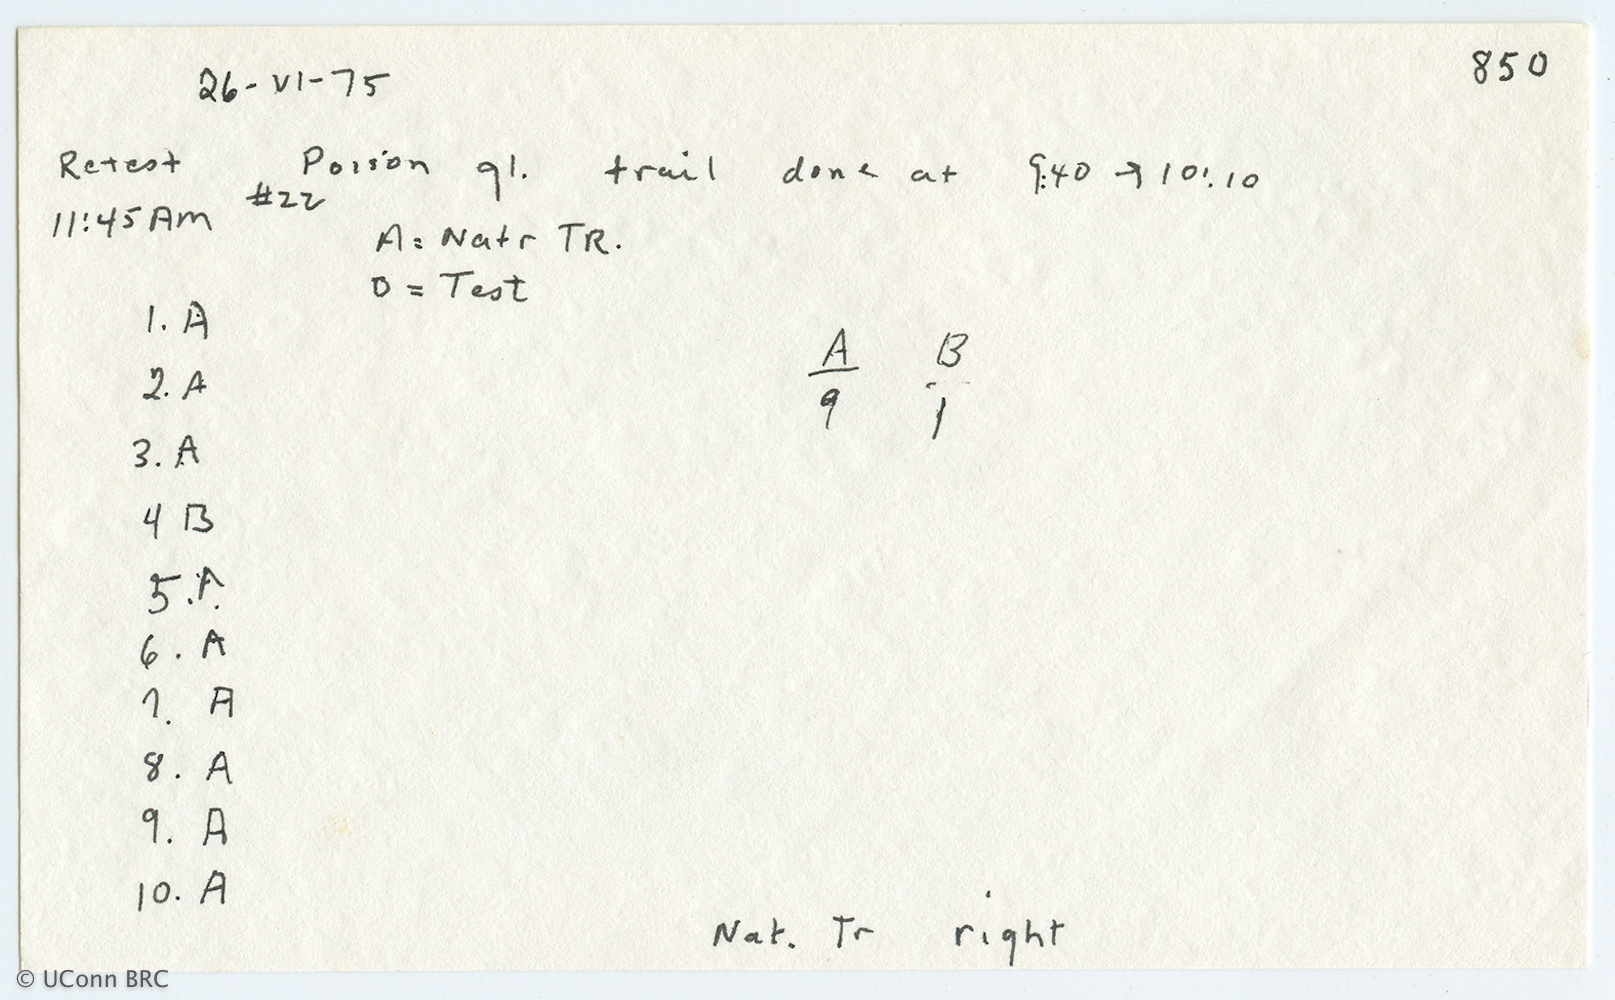 850
26-VI-75
Retest Poison gl. trail done at 9:40 → 10:10
11:45 AM #22
A = Natr TR.
O = Test
1. A
2. A
3. A
4 B
5. A
6. A
7. A
8. A
9. A
10. A
A B
9 1
Nat. Tr right
© UConn BRC